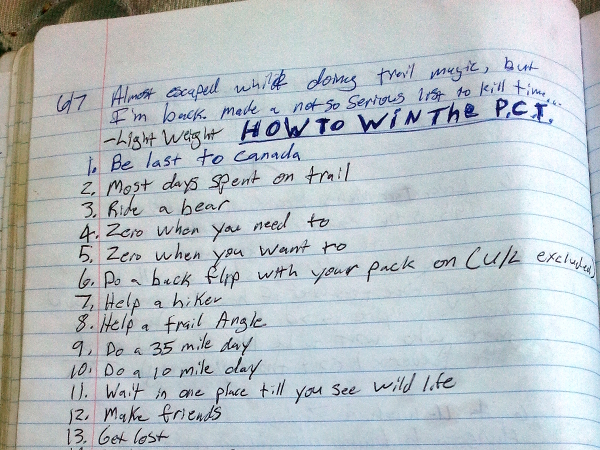 6/7 Almost escaped while doing trail magic, but
I'm back. made a not so serious list to kill time...
-Light Weight HOW TO WIN The P.C.T.
1. Be last to Canada
2. Most days spent on trail
3. Ride a bear
4. Zero when you need to
5. Zero when you want to
6. Do a back flip with your pack on (U/L excluded)
7. Help a hiker
8. Help a trail Angle
9. Do a 35 mile day
10. Do a 10 mile day
11. Wait in one place till you see wild life
12. Make friends
13. Get lost